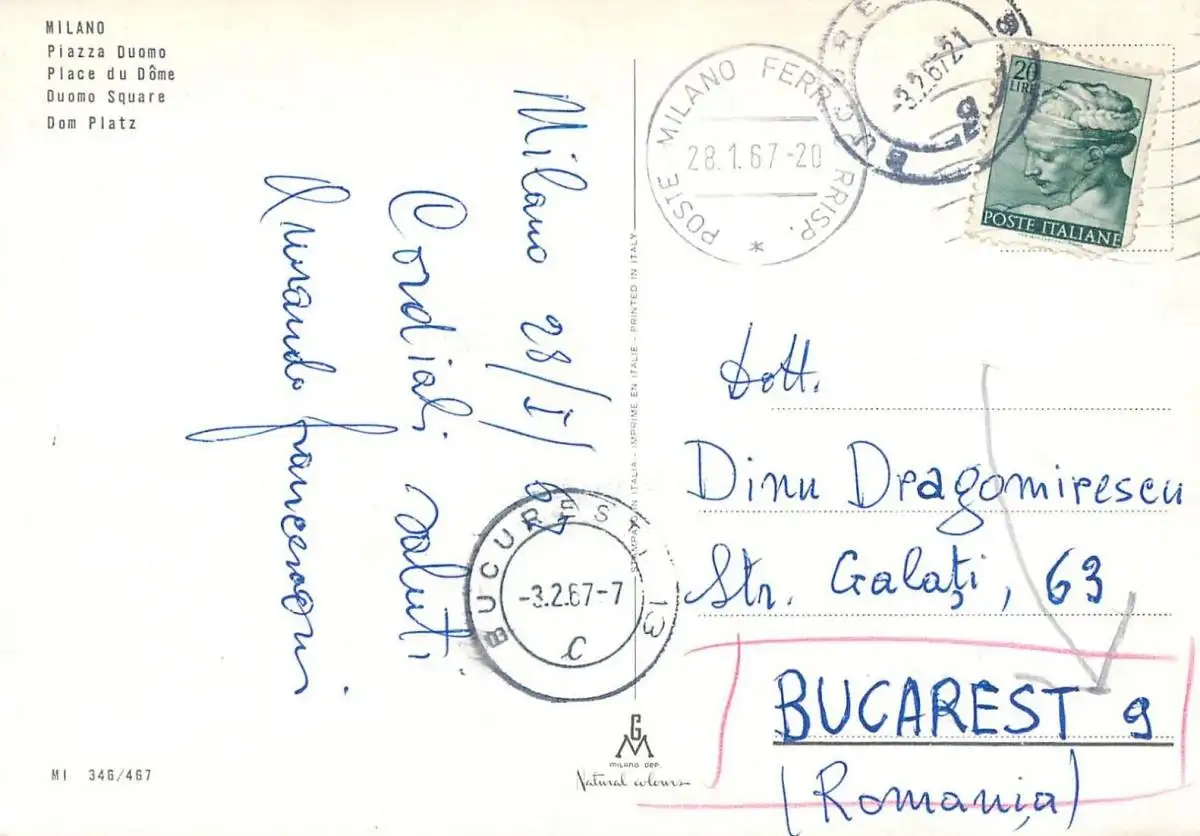 MILANO
Piazza Duomo
Place du Dôme
Duomo Square
Dom Platz
Milano 28/I/67
Cordiali saluti
STAMPATO IN ITALIA - IMPRIME EN ITALIE - PRINTED IN ITALY
POSTE MILANO FERR. CORRISP.
28.1.67-20
-3.2.67 21
20
LIRE
POSTE ITALIANE
Dott.
Dinu Dragomirescu
Str. Galaţi, 63
BUCAREST 9
(Romania)
BUCUREŞTI 13
-3.2.67-7
C
GM
MILANO DEP.
Natural colours
MI 346/467